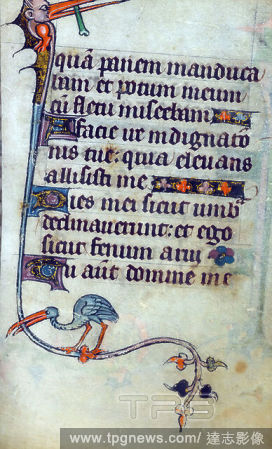 quā panem manduca
bam et potum meum
cū fletu miscebam
A facie ire indignatio
nis tue: quia eleuans
allisisti me
Dies mei sicut umb
declinauerunt: et ego
sicut fenum arui
Tu aūt domine in e
TPG
www.tpgnews.com/ 達志影像